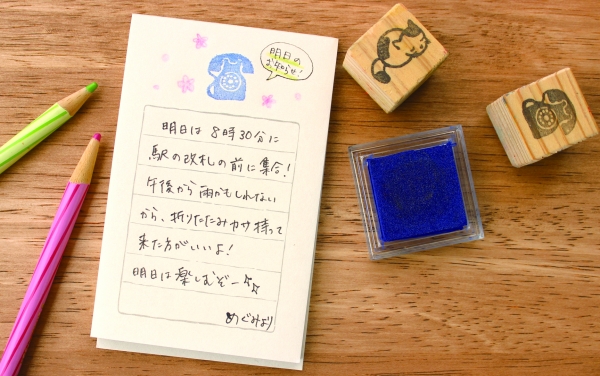 明日の
お知らせ!
明日は 8時30分に
駅の改札の前に集合!
午後から雨かもしれない
から、折りたたみカサ持って
来た方がいいよ!
明日は楽しむぞー♪
めぐみより